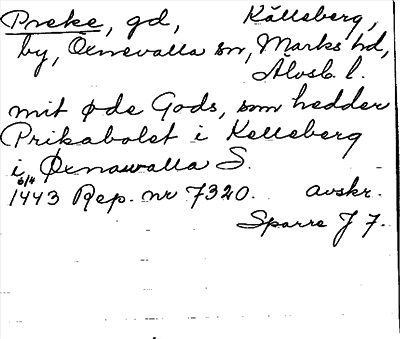 Preke, gd, Källeberg,
by, Örnevalla sn, Marks hd,
Älvsb. l.
mit øde Gods, som hedder
Prikabolet i Kelleberg
i Ørnawalla S.
6/4
1443 Rep. nr 7320. avskr.
Sparre J 7.